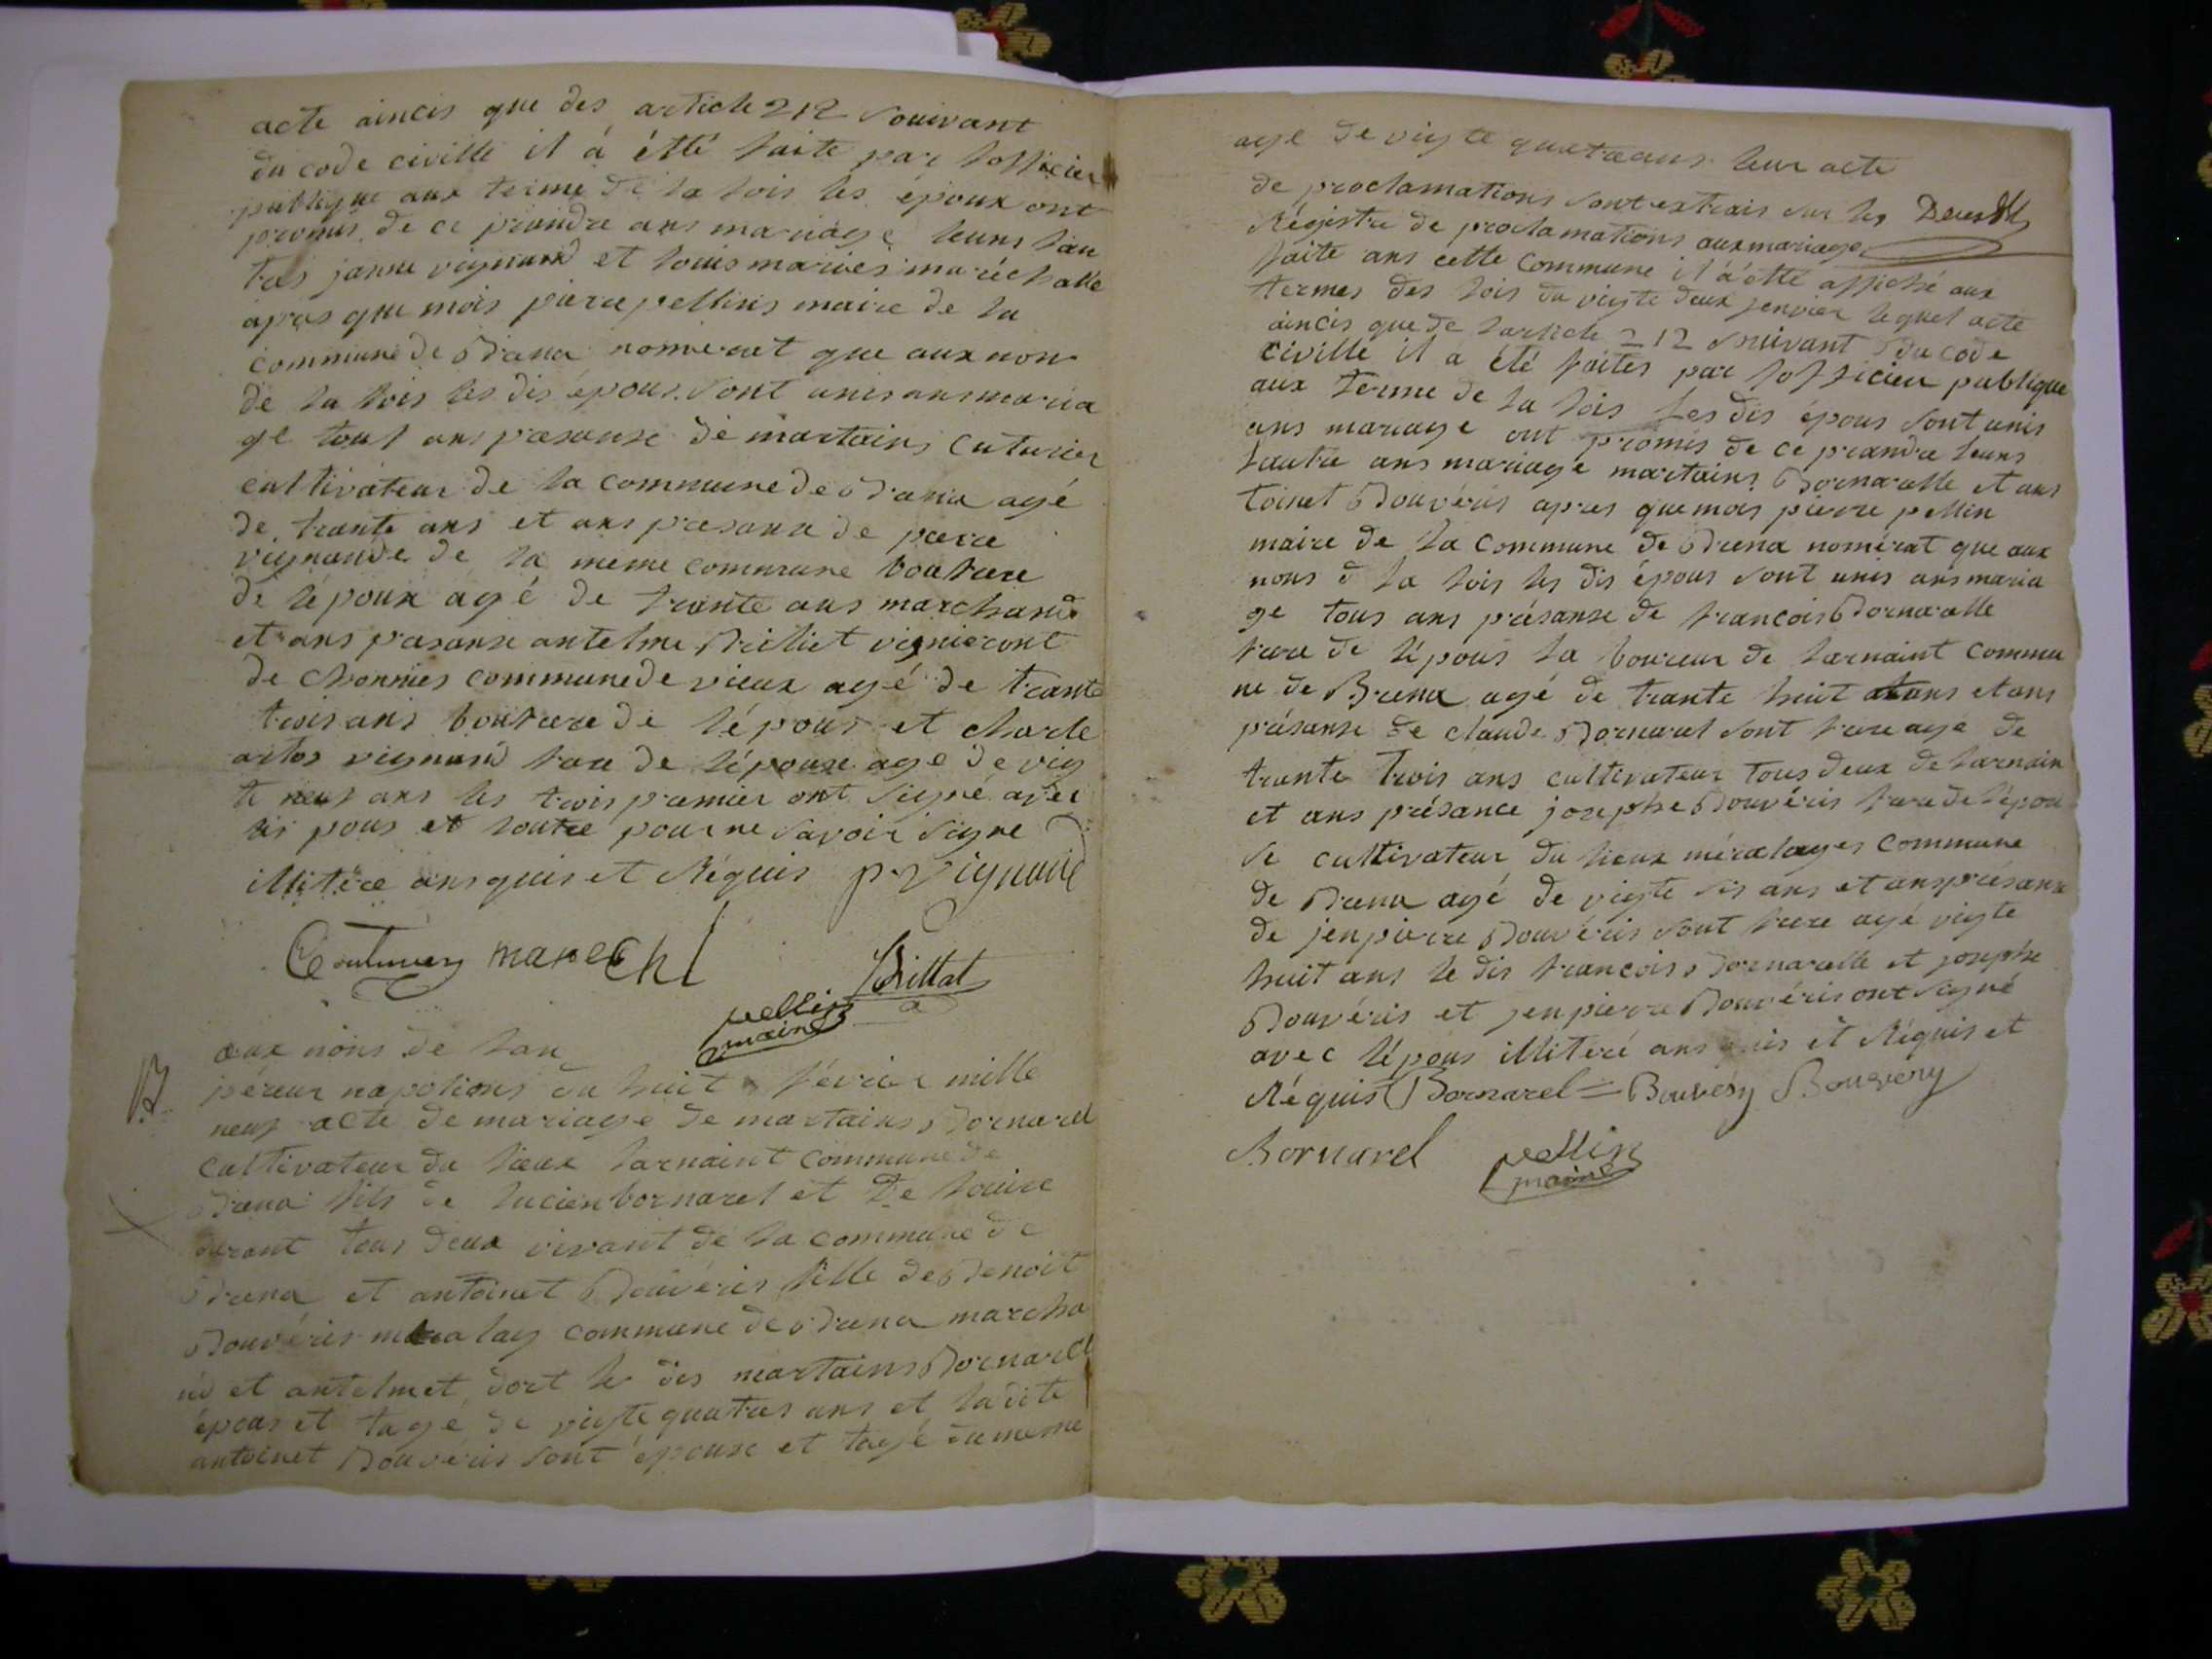 acte aincis que des article 212 souivant
du code civille il à étté faite par lofficier
publique aux terme de la lois les époux ont
promis de ce prandre ans mariage leuns lau
tres janne vignand et louis mariés maréchalle
apres que mois piere pellins maire de la
commune de Brana nomérat que aux non
de la lois les dis épous sont unis ans maria
ge tous ans presanse de martains Cuturier
cultivateur de la commune de Brana agé
de trante ans et ans presanse de piere
vignande de la meme commune boutrere
de lépoux agé de trante ans marchand
et ans presanse antelme Brilliet vignieront
de Chonnies commune de vieux agé de trante
trois ans boutrere de lépous et charle
artos vignand frere de lépouse age de vig
te neuf ans les trois premier ont signé avec
lés pous et loutre pour ne savoir signe
illitéré ans quis et Réquis p. vignand
Couturier marechl
Brillat
pellin
maire
B
aux nons de lan
péreur napolions du huit février mille
neuf acte de mariage de martains Bornarel
cultivateur du lieux larnaint commune de
Brena fils de lucien bornarel et De louise
durant tous deux vivant de la commune de
Brena et antoinet Bouveris fille de Benoit
Bouvéris méralay commune de Brena marcha
nd et antelmet dort le dis martains Bornarel
épous et tagé de vigte quatres ans et la dite
antoinet Bouvéris sont épouse et tagé du meme
age de vigte quatre ans leur acte
de proclamations sont extrais sur les
Régistre de proclamations aux mariage
faite ans cette commune il à étté affiché aux
termes des lois du vigte deux jenvier lequel acte
aincis que de larticle 212 suivant du code
civille il a été faites par lofficieu publique
aux terme de la lois Les dis épous sont unis
ans mariage ont promis de ce prandre leuns
lautre ans mariage martains Bornaralle et ans
toinet Bouvéris apres que mois pierre pellin
maire de la commune de Brena nomérat que aux
nons d la lois les dis épous sont unis ans maria
ge tous ans présanse de francois Bornaralle
frere de lépous la boureur de larnaint commu
ne de Brena agé de trante huit ans et ans
présanse de claude Bornarel sont frere age de
trante trois ans cultivateur tous deux de larnain
et ans présance josephe Bouvéris frere de lépou
se cultivateur du lieux méralayes commune
de Brena agé de vigte sis ans et ans présanse
de jenpierre Bouvéris sont frere agé vigte
huit ans le dis francois Bornaralle et josephe
Bouvéris et jenpierre Bouvéris ont signé
avec lépous illitéré ans quis et Réquis et
Réquis Bornarel = Bouvéry Bouvery
Bornarel pellin
maire